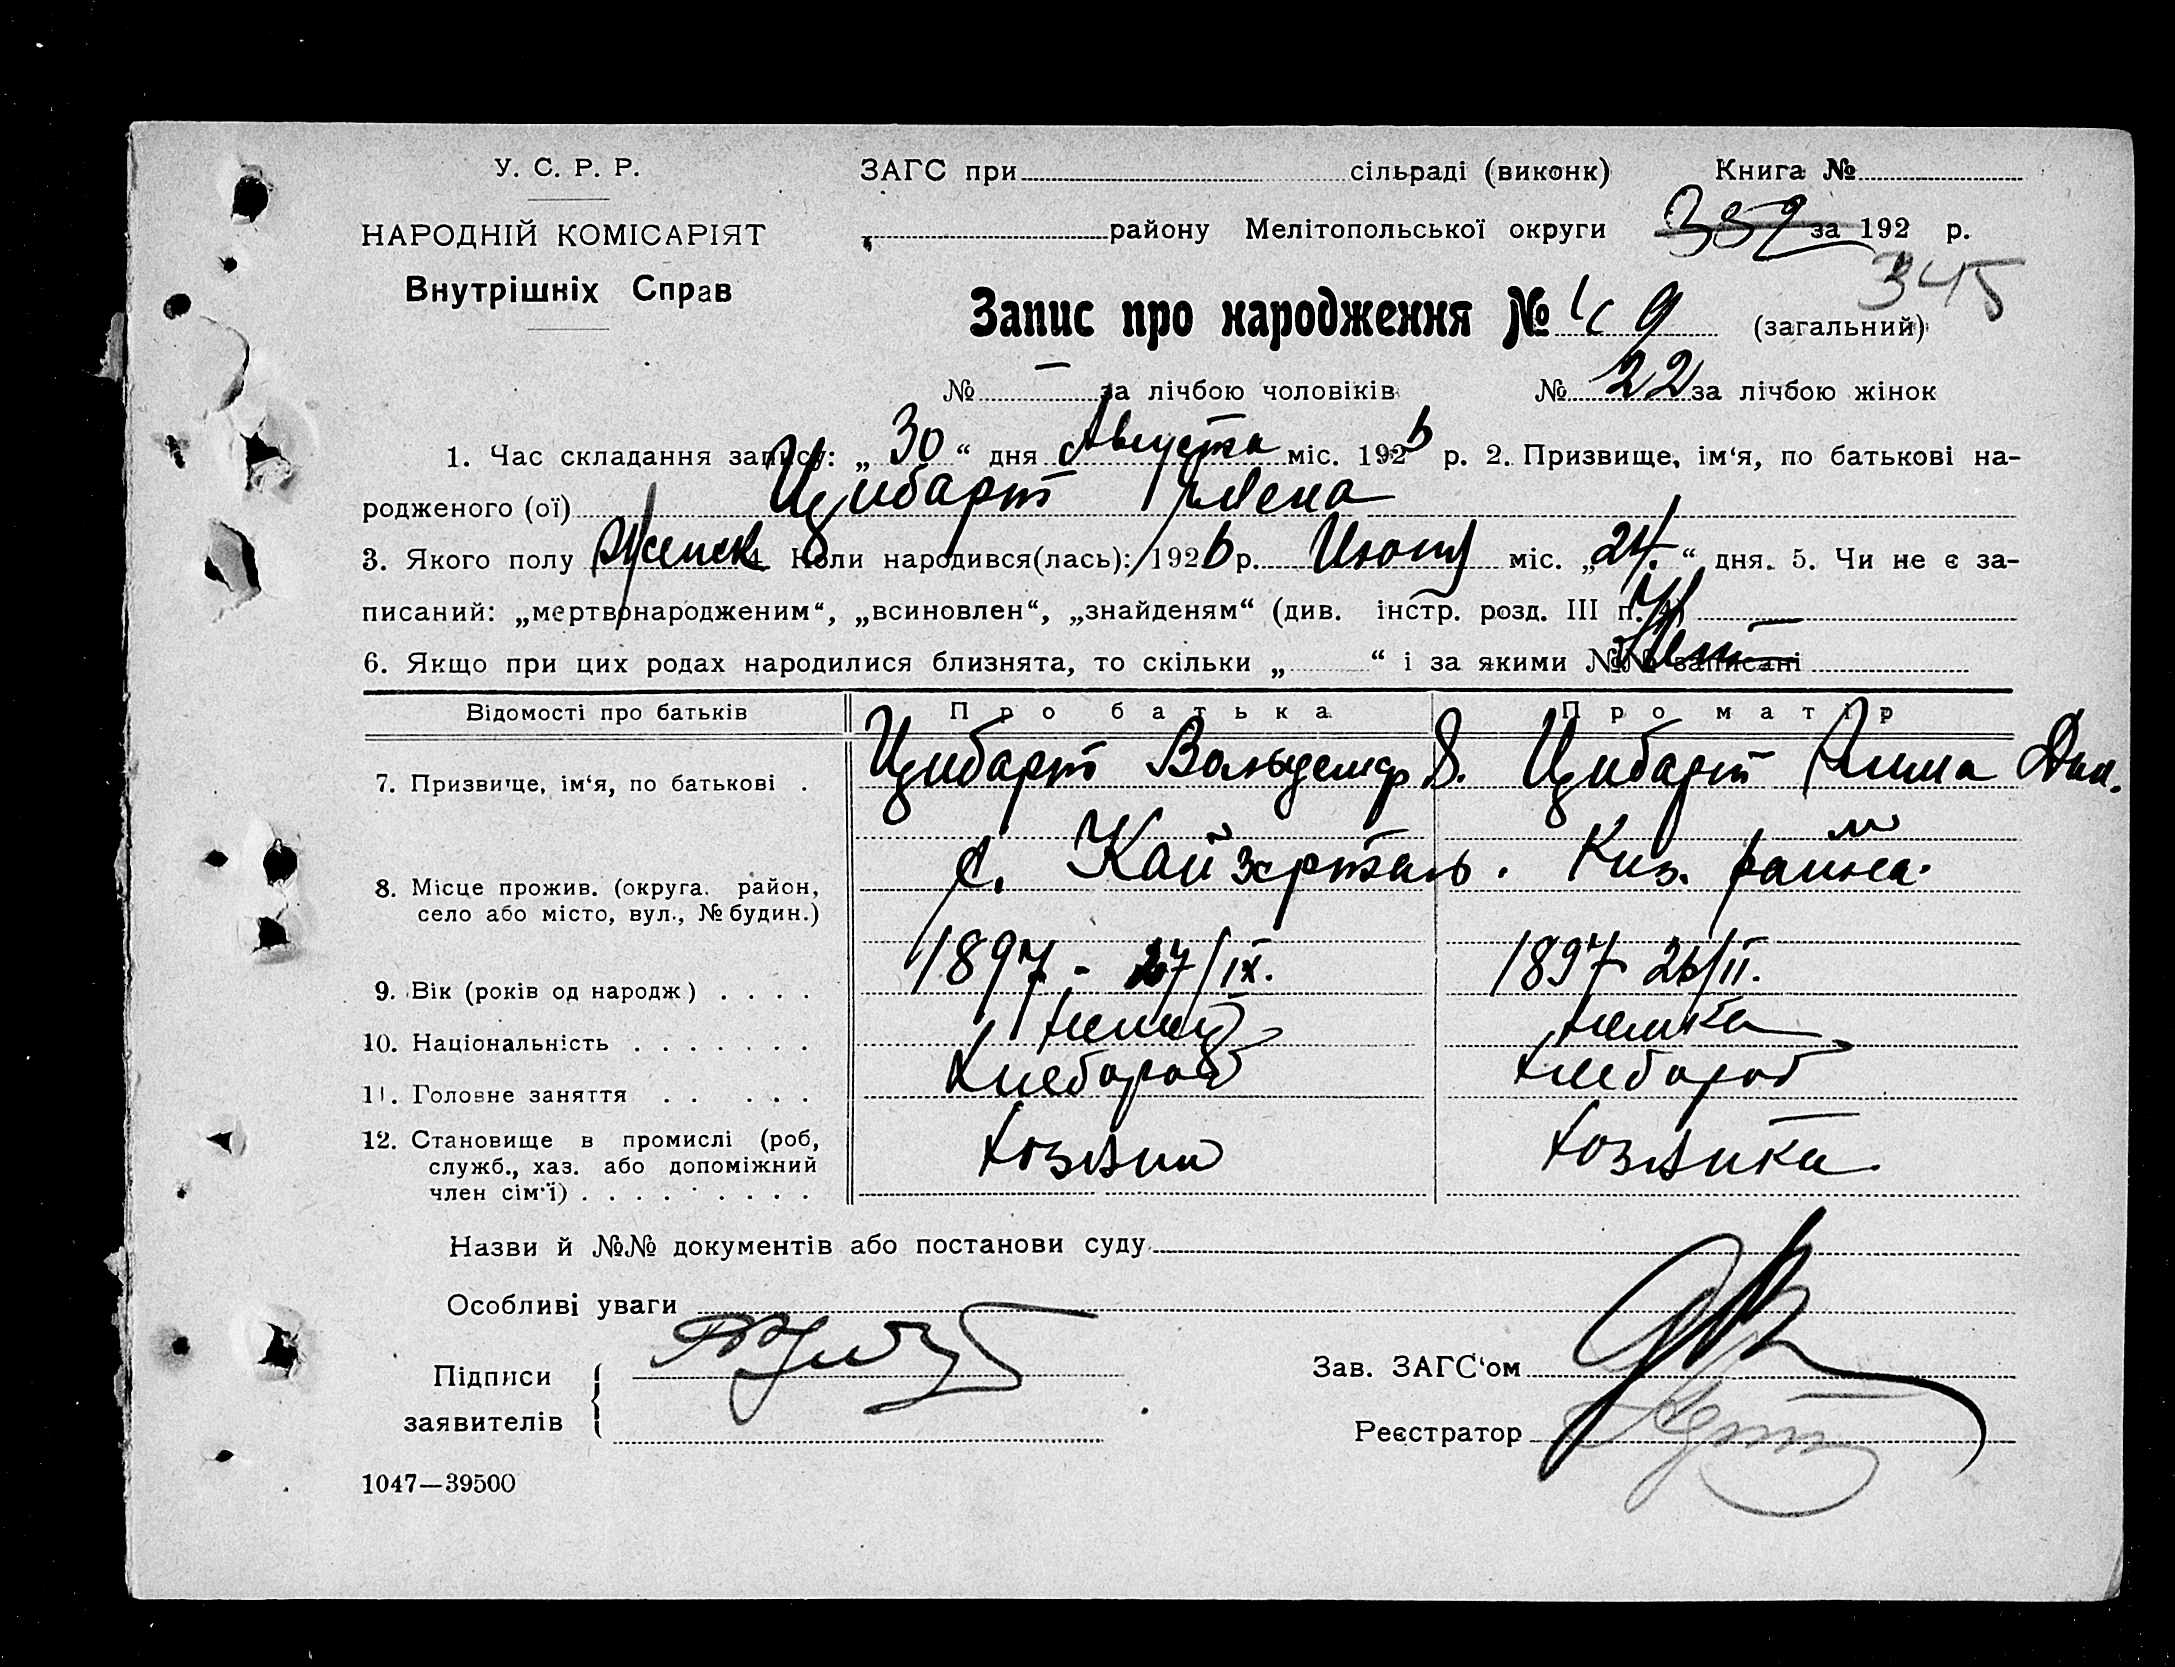 У. С. Р. Р.
НАРОДНІЙ КОМІСАРІЯТ
Внутрішніх Справ
ЗАГС при сільраді (виконк) Книга №
району Мелітопольської округи 352 за 192 р.
345
Запис про народження № 49 (загальний)
№ — за лічбою чоловіків № 22 за лічбою жінок
1. Час складання запису: „ 30 “ дня Августа міс. 1926 р. 2. Призвище, ім‘я, по батькові на-
родженого (ої) Цибарт
3. Якого полу Женск 4. Коли народився(лась): 1926 р. міс. „ 24. “ дня. 5. Чи не є за-
писаний: „мертвонародженим“, „всиновлен“, „знайденям“ (див. інстр. розд. III п. 4)
6. Якщо при цих родах народилися близнята, то скільки „ “ і за якими №№ записані Нет
Відомості про батьків Про батька Про матір
7. Призвище, ім‘я, по батькові . Цибарт Вольдемар Цибарт
8. Місце прожив. (округа, район,
село або місто, вул., № будин.) с. Кайзерталь. района.
9. Вік (років од народж) . . . . 1897 - 27/IX. 1897 26/II.
10. Національність . . . . . . . немец немка
11. Головне заняття . . . . . Хлебороб Хлебороб
12. Становище в промислі (роб,
служб., хаз. або допоміжний
член сім‘ї) . . . . . . . . . Хозяин Хозяйка
Назви й №№ документів або постанови суду
Особливі уваги
Підписи
заявителів
Зав. ЗАГС‘ом
Реєстратор
1047—39500